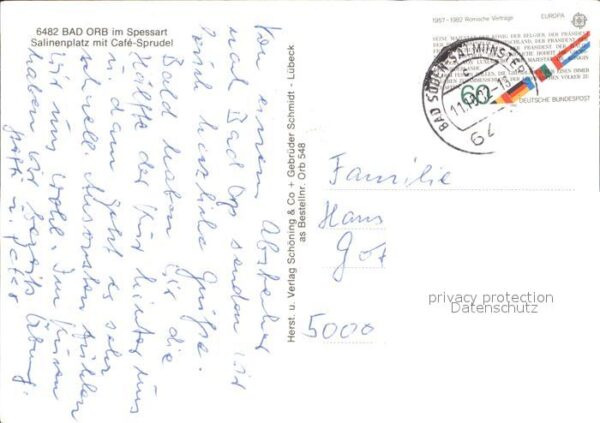 6482 BAD ORB im Spessart
Salinenplatz mit Café-Sprudel
Von einem Abstecher
nach Bad Orb senden wir
herzliche Grüße.
Bald haben wir die
Hälfte der Kur hinter uns
u. dann geht es sehr
schnell. Ansonsten fühlen
wir uns wohl. Im Kuren
haben wir bereits Übung.
u. Peter
Herst. u. Verlag Schöning & Co + Gebrüder Schmidt - Lübeck
as Bestellnr. Orb 548
1957-1982 Römische Verträge
EUROPA
60
DEUTSCHE BUNDESPOST
BAD SODEN-SALMÜNSTER
Familie
Hans
5000
privacy protection
Datenschutz